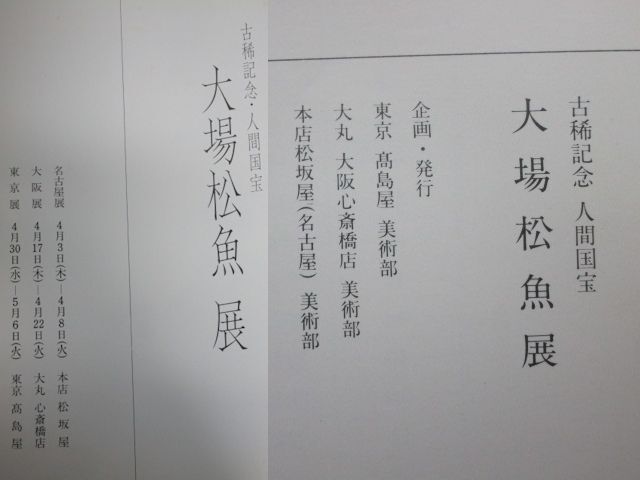 古稀記念・人間国宝
大場松魚展
名古屋展 4月3日(木)—4月8日(火) 本店 松坂屋
大阪展 4月17日(木)—4月22日(火) 大丸 心斎橋店
東京展 4月30日(水)—5月6日(火) 東京 髙島屋
古稀記念 人間国宝
大場松魚展
企画・発行
東京 髙島屋 美術部
大丸 大阪心斎橋店 美術部
本店松坂屋(名古屋) 美術部